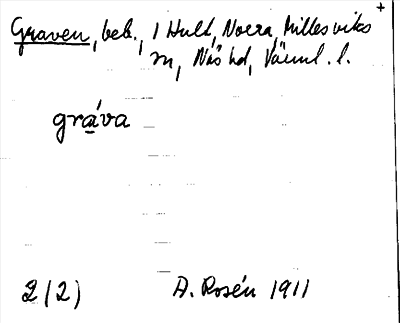 +
Graven, beb., 1 Hult, Norra, Millesviks
m, Näs hd, Värml. l.
gráva
2 (2) D. Rosén 1911